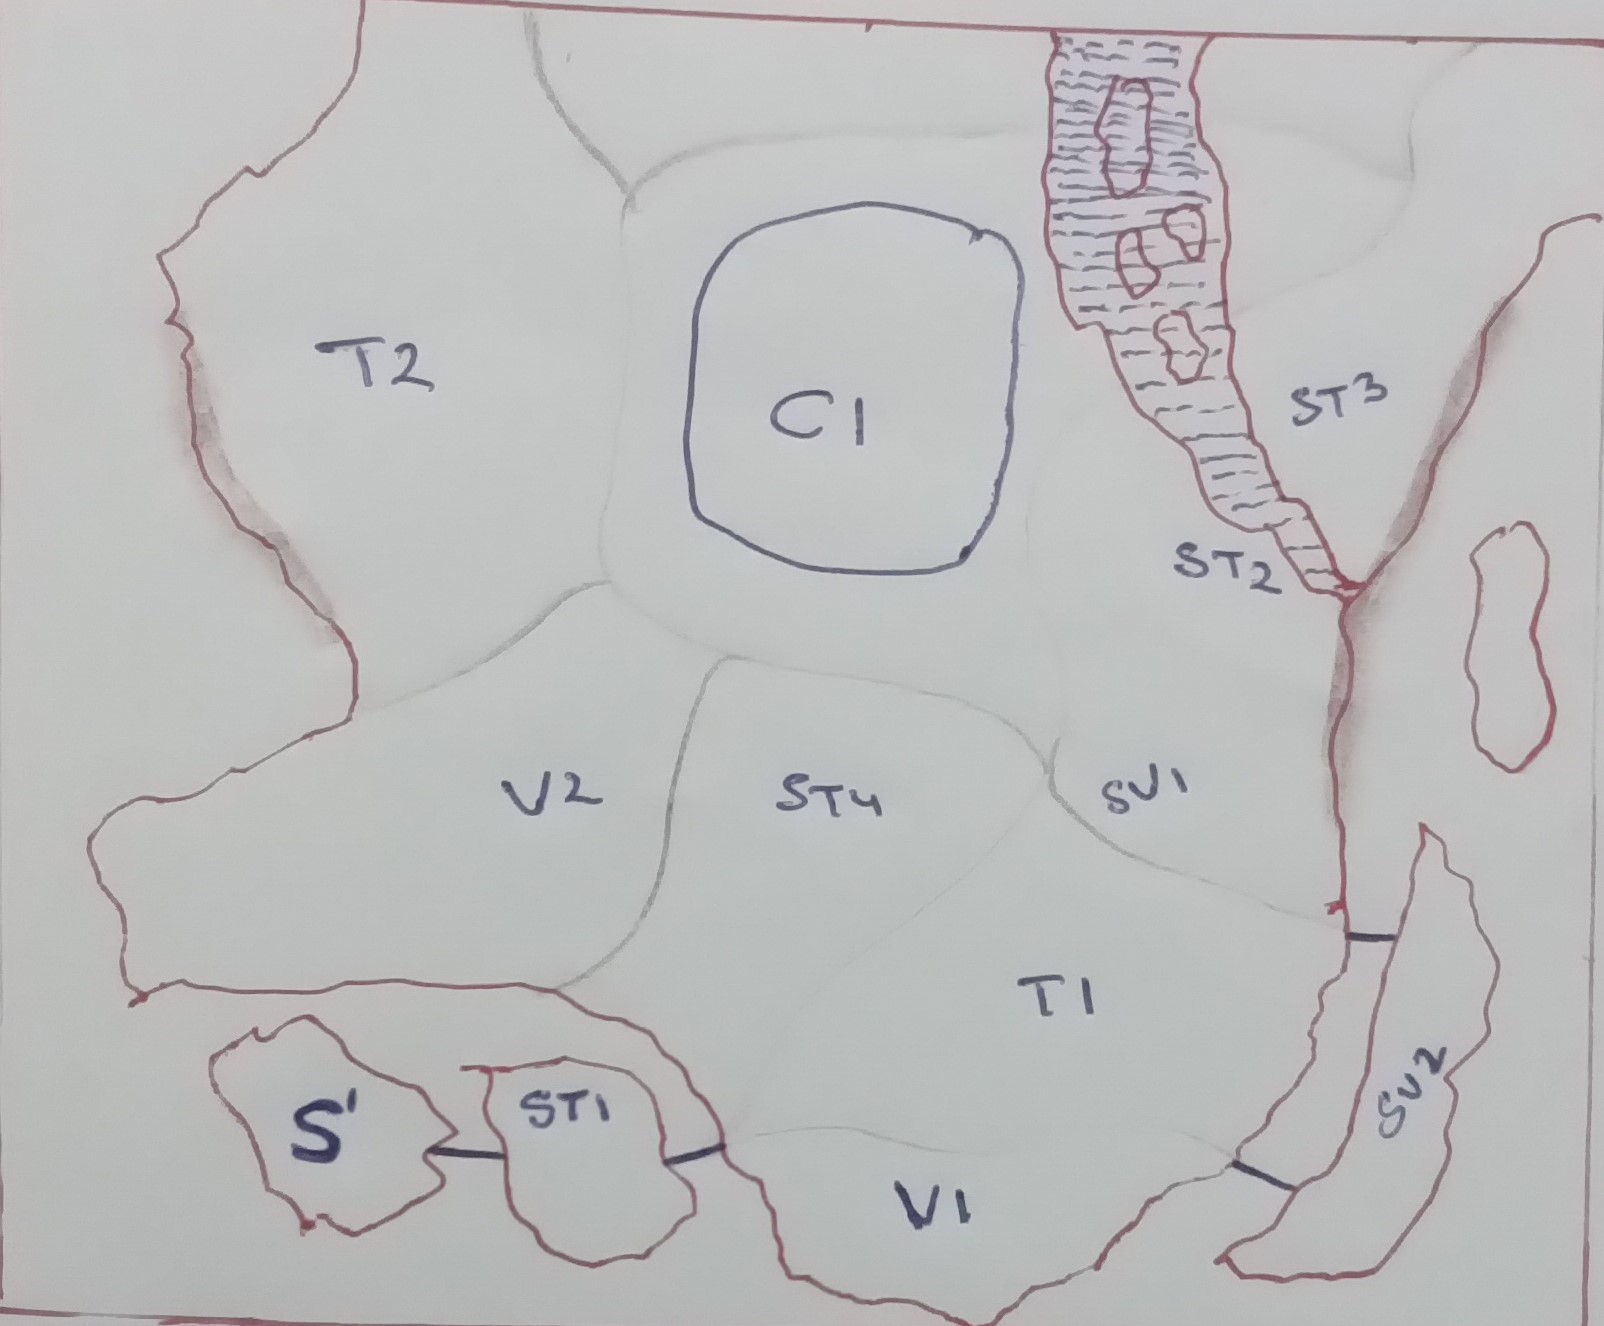 T2
C1
ST3
ST2
V2
ST4
SV1
T1
SV2
S'
ST1
V1